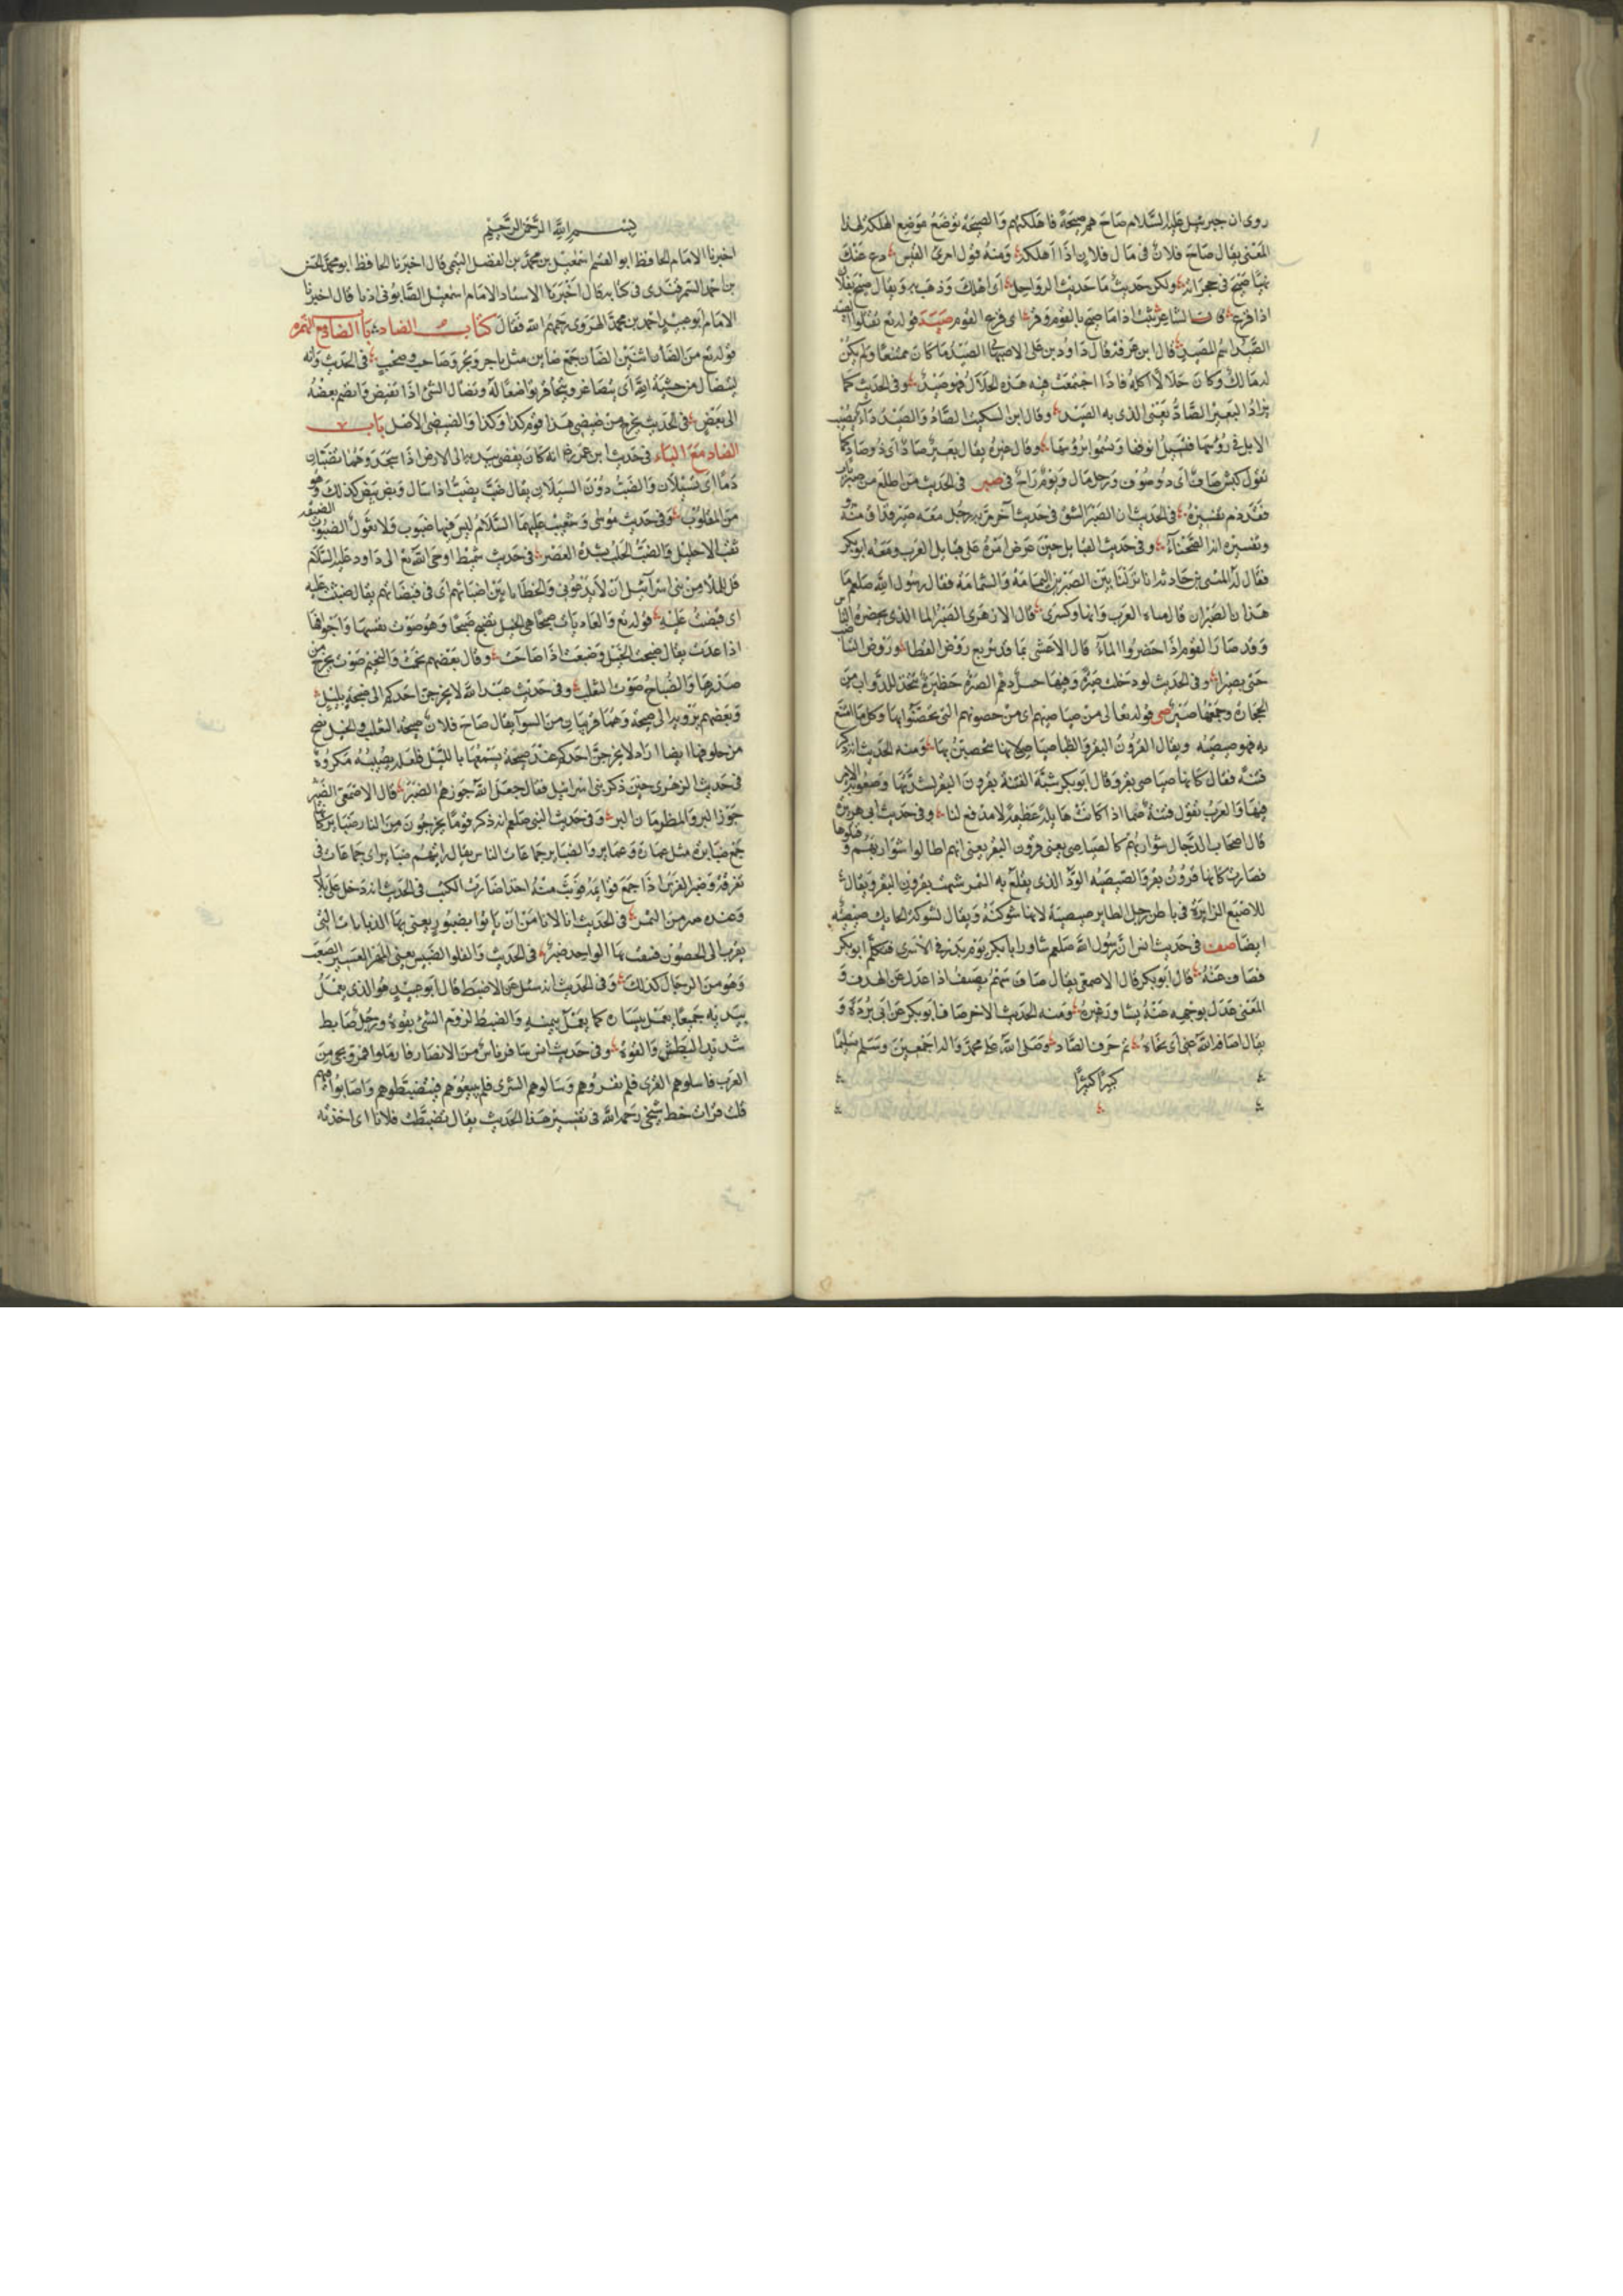 روى ان جبرئيل عليه السلام صاح بهم صيحة فاهلكتهم والصيحة توضع موضع الهلكة لهذا
المعنى يقال صاح فلان في مال فلان اذا اهلكه ومنه قول امرئ القيس دع عنك
نهبا صيح في حجراته ولكن حديث ما حديث الرواحل اى اهلك وذهب به ويقال صيح بفلان
اذا فزع قال الشاعر اذا ما صيح بالقوم وفر اى فزع القوم صيد قوله تع لا تقتلوا الصيد
الصيد اسم للمصيد قال ابن عرفة قال داود بن على الاصبهانى الصيد ما كان ممتنعا ولم يكن
له مالك وكان حلالا اكله فاذا اجتمعت فيه هذه الخلال فهو صيد وفي الحديث كما
يذاد البعير الصاد يعنى الذى به الصيد وقال ابن السكيت الصاد والصيد داء يصيب
الابل في رؤسها فتسيل انوفها وتسموا برؤسها وقال غيره يقال بعير صاد اى ذو صاد كما
تقول كبش صاف اى ذو صوف ورجل مال ويوم راح صير في الحديث من اطلع من صير باب
فقد دمر تفسيره في الحديث ان الصير الشق في حديث آخر مر به رجل معه صير فذاق منه
وتفسيره انه الصحناء وفي حديث القبايل حين عرض امره على قبايل العرب ومعه ابو بكر
فقال له المثنى بن حارثة انا نزلنا بين الصيرين اليمامة والسمامة فقال رسول الله صلعم ما
هذان الصيران قال مياه العرب وانهار كسرى قال الازهرى الصير الماء الذى يحضره الناس
وقد صار القوم اذا حضروا الماء قال الاعشى بما قد تربع روض القطا وروض التناضب
حتى يصيرا وفي الحديث لو دخلت صيرة وفيها خيل دهم الصيرة حظيرة تتخذ للدواب من
الحجارة وجمعها صير صى قوله تعالى من صياصيهم اى من حصونهم التى تحصنوا بها وكل ما امتنع
به فهو صيصية ويقال لقرون البقر والظبا صياصي لانها تحصن بها ومنه الحديث انه ذكر
فتنة فقال كانها صياصى بقر وقال ابو بكر شبه الفتنة بقرون البقر لشدتها وصعوبة الامر
فيها والعرب تقول فتنة صما اذا كانت هايلة عظيمة لا مدفع لها وفي حديث ابى هريرة
قال اصحاب الدجال شواربهم كالصياصى يعنى قرون البقر يعنى انهم اطالوا شواربهم وفتلوها
فصارت كانها قرون بقر والصيصية الود الذى يقلع به التمر شبهت بقرون البقر ويقال
للاصبع الزايدة في باطن رجل الطاير صيصية لانها شوكته ويقال لشوكة الحايك صيصية
ايضا صيف في حديث انس ان رسول الله صلعم شاور ابا بكر يوم بدر في الاسرى فتكلم ابو بكر
فصاف عنه قال ابو بكر قال الاصمعى يقال صاف سهم يصيف اذا عدل عن الهدف و
المعنى عدل بوجهه عنه يشاور غيره ومنه الحديث الاخر صاف ابو بكر عن ابى بردة و
يقال اصاف الله عنى اى نحاه تم حرف الصاد وصلى الله على محمد واله اجمعين وسلم تسليما
كثيرا كثيرا
بسم الله الرحمن الرحيم
اخبرنا الامام الحافظ ابو القسم اسمعيل بن محمد بن الفضل التيمى قال اخبرنا الحافظ ابو محمد الحسن
بن احمد السمرقندى في كتابه قال اخبرنا الاستاد الامام اسمعيل الصابونى اذنا قال اخبرنا
الامام ابو عبيد احمد بن محمد الهروى رحمهم الله فقال كتاب الضاد باب الضاد مع الهمزه
قوله تع من الضان اثنين الضان جمع ضاين مثل تاجر وتجر وصاحب وصحب في الحديث وانه
ليتضال من خشية الله اى يتصاغر ويتحاقر تواضعا له وتضال الشئ اذا تقبض وانضم بعضه
الى بعض في الحديث يخرج من ضيضى هذا قوم كذا وكذا والضيضى الاصل باب
الضاد مع الباء في حديث ابن عمر رضى انه كان يفضى بيديه الى الارض اذا سجد وهما تضبان
دما اى تسيلان والضب دون السيلان يقال ضب يضب اذا سال وبض يبض كذلك وهو
من المقلوب وفي حديث موسى وشعيب عليهما السلام ليس فيها ضبوب ولا ثعول الضبوب الضيقة
ثقب الاحليل والضب الحلب بشدة العصر في حديث شميط اوحى الله تع الى داود عليه السلام
قل للملا من بنى اسرآئيل ان لا يدعونى والخطايا بين اضباثهم اى في قبضاتهم يقال ضبثت عليه
اى قبضت عليه قوله تع والعاديات ضبحا هى الخيل تضبح ضبحا وهو صوت نفسها واجوافها
اذا عدت يقال ضبحت الخيل وضبعت اذا صاحت وقال بعضهم نحمت والنحيم صوت يخرج من
صدرها والضباح صوت الثعلب وفي حديث عبد الله لا يخرجن احدكم الى ضبحة بليل
وبعضهم يرويه الى صيحة وهما قريبان من السوآ يقال صاح فلان ضبحة الثعلب والخيل تضبح
من حلوقها ايضا اراد لا يخرجن احدكم عند صيحة يسمعها بالليل فلعله يصيبه مكروه
في حديث الزهرى حين ذكر بنى اسرائيل فقال جعل الله جوزهم الضبر قال الاصمعى الضبر
جوز البر والمظ رمان البر وفي حديث النبى صلعم انه ذكر قوما يخرجون من النار ضباير كانها
جمع ضبارة مثل عمارة وعماير والضباير جماعات الناس يقال رايتهم ضباير اى جماعات في
تفرقة وضبر الفرس اذا جمع قوائمه ووثب منه اخذ اضبارة الكتب في الحديث انه دخل على بلال
وعنده صبر من التمر في الحديث انا لا نامن ان ياتوا بضبور يعنى بها الدبابات التى
تقرب الى الحصون فتنقب بها الواحد ضبر في الحديث والفلو الضبيس يعنى المهر العسير الصعب
وهو من الرجال كذلك وفي الحديث انه سئل عن الاضبط قال ابو عبيد هو الذى يعمل
بيديه جميعا يعمل بيساره كما يعمل بيمينه والضبط لزوم الشئ بقوة ورجل ضابط
شديد البطش والقوة وفي حديث انس سافر ناس من الانصار فارملوا فمروا بحى من
العرب فاسلوهم القرى فلم يقروهم وسالوهم الشرى فلم يبيعوهم فتضبطوهم واصابوا منهم
قلت قرات بخط شيخى رحمه الله في تفسير هذا الحديث يقال تضبطت فلانا اى اخذته